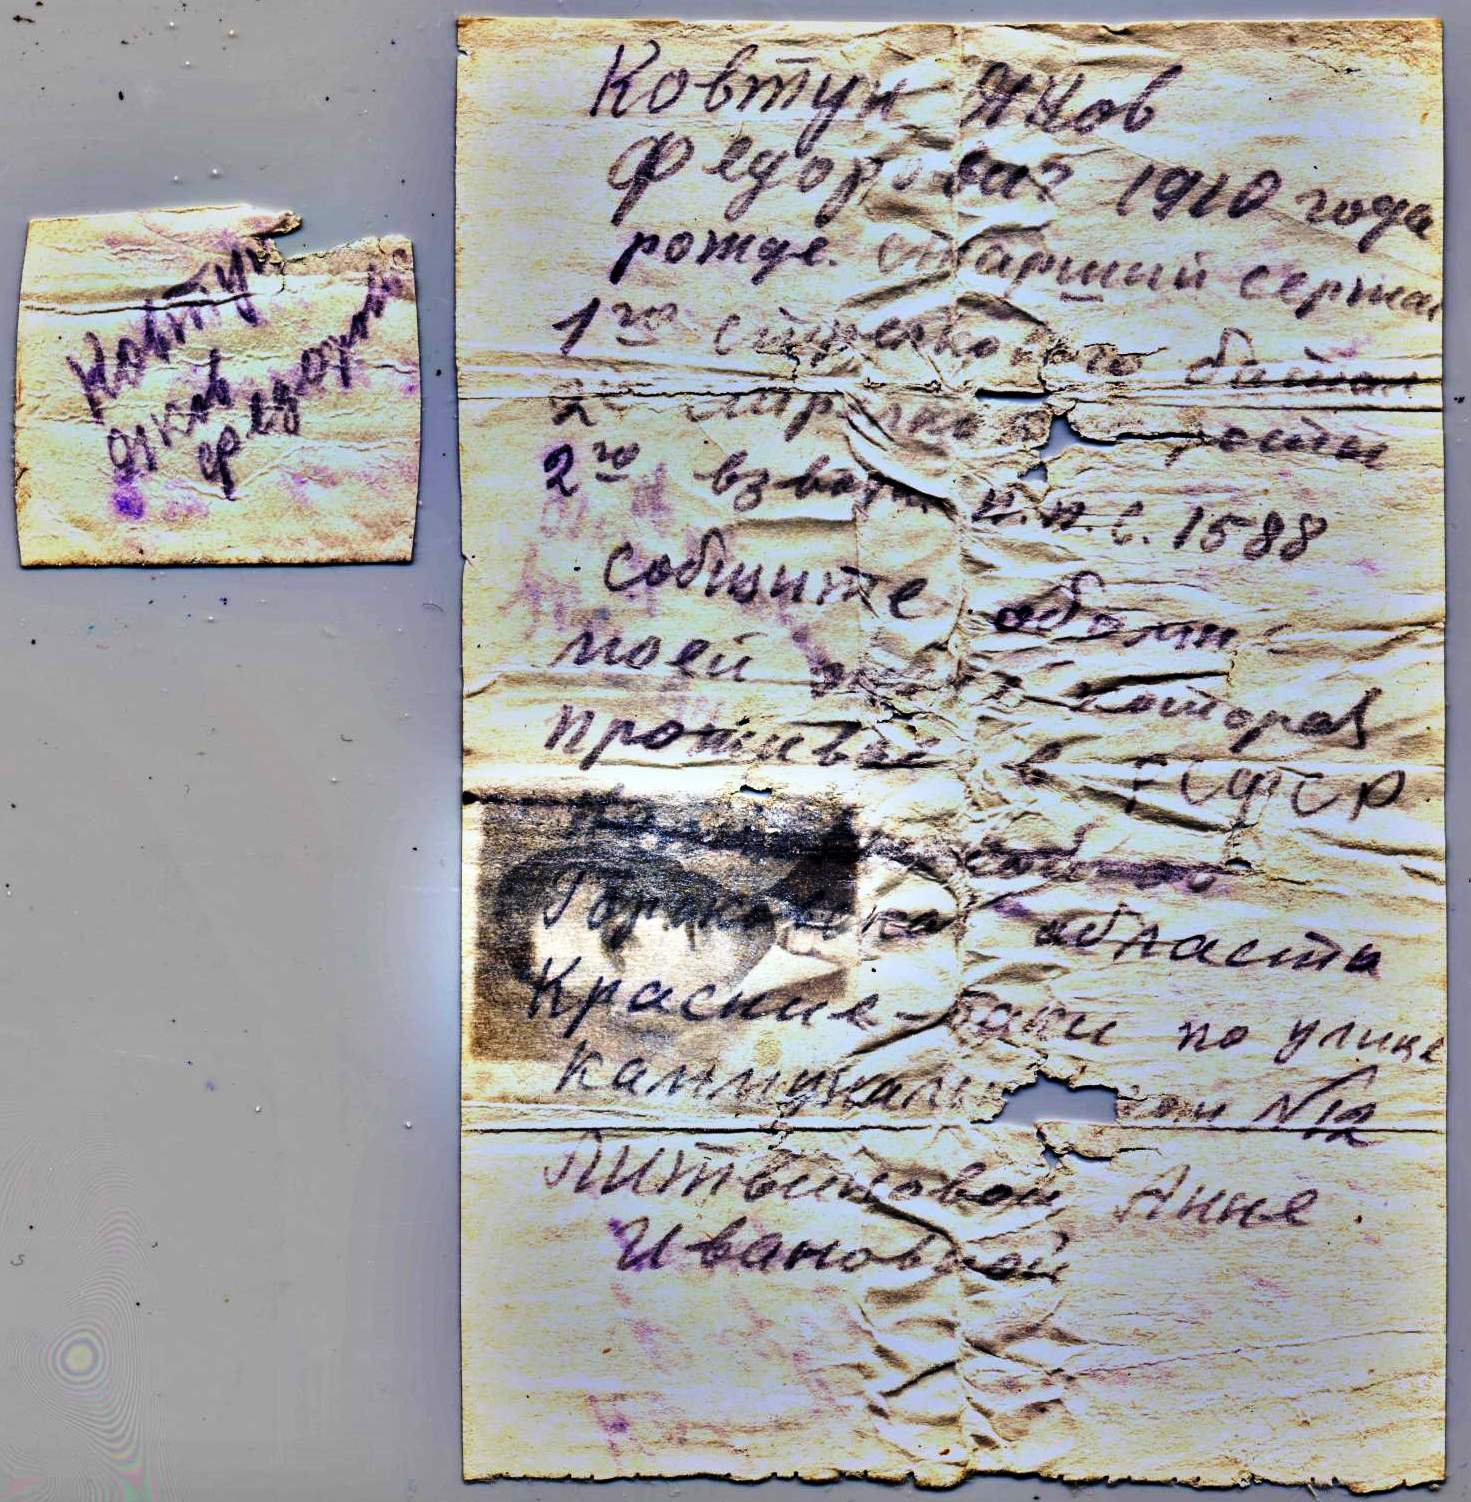 Ковтун
Яков
Федорови
Ковтун Яков
Федорович 1910 года
рожде. старший сержан
1го стрелкового батал
2й роты
2го взвота п.п.с. 1588
собщите обомне
моей жене котора
проживае в РСФСР
Горьковская область
Красные-баки по улице
Каммунальн дом №12
Литвиновой Анне
Ивановной